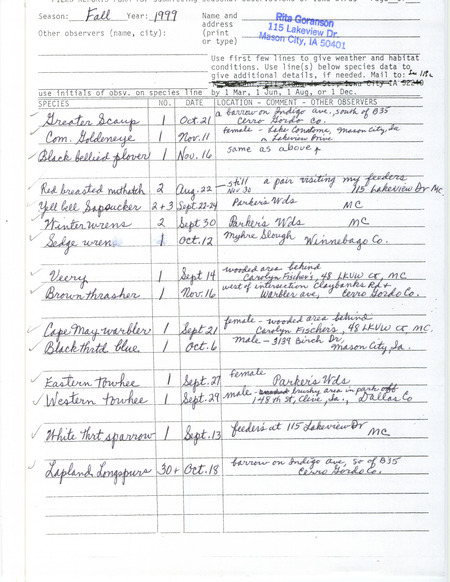 Season: Fall Year: 1999 Name and
address
(print
or type)
Rita Goranson
115 Lakeview Dr.
Mason City, IA 50401
Other observers (name, city):
Use first few lines to give weather and habitat
conditions. Use line(s) below species data to
give additional details, if needed. Mail to:
use initials of obsv. on species line by 1 Mar, 1 Jun, 1 Aug, or 1 Dec.
SPECIES NO. DATE LOCATION - COMMENT - OTHER OBSERVERS
a barrow on Indigo ave, south of B35
Greater Scaup 1 Oct. 21 Cerro Gordo Co.
female - Lake Mason City, Ia
Com. Goldeneye 1 Nov. 11 Lakeview Drive
Black bellied plover 1 Nov. 16 same as above
Red breasted nuthatch 2 Aug. 22 - still Nov 30 a pair visiting my feeders
115 Lakeview Dr MC
Yell bell Sapsucker 2+3 Sept 22-24 Parker's Wds MC
Winter wrens 2 Sept 30 Parker's Wds MC
Sedge wren 1 Oct. 12 Myhre Slough Winnebago Co.
wooded area behind
Veery 1 Sept 14 Carolyn Fischer's, 48 LKVW CT, MC
west of intersection Claybanks Rd +
Brown thrasher 1 Nov. 16 Warbler ave, Cerro Gordo Co.
female - wooded area behind
Cape May warbler 1 Sept. 21 Carolyn Fischer's, 48 LKVW CT MC.
Black thrtd blue 1 Oct. 6 Male - 3139 Birch Dr,
Mason City, Ia.
female
Eastern Towhee 1 Sept. 27 Parker's Wds
male - brushy area in park off
Western Towhee 1 Sept. 29 148th St, Clive, Ia., Dallas Co
White thrt sparrow 1 Sept. 13 feeders at 115 Lakeview Dr
MC
barrow on Indigo ave, so of B35
Lapland Longspurs 30+ Oct. 18 Cerro Gordo Co.